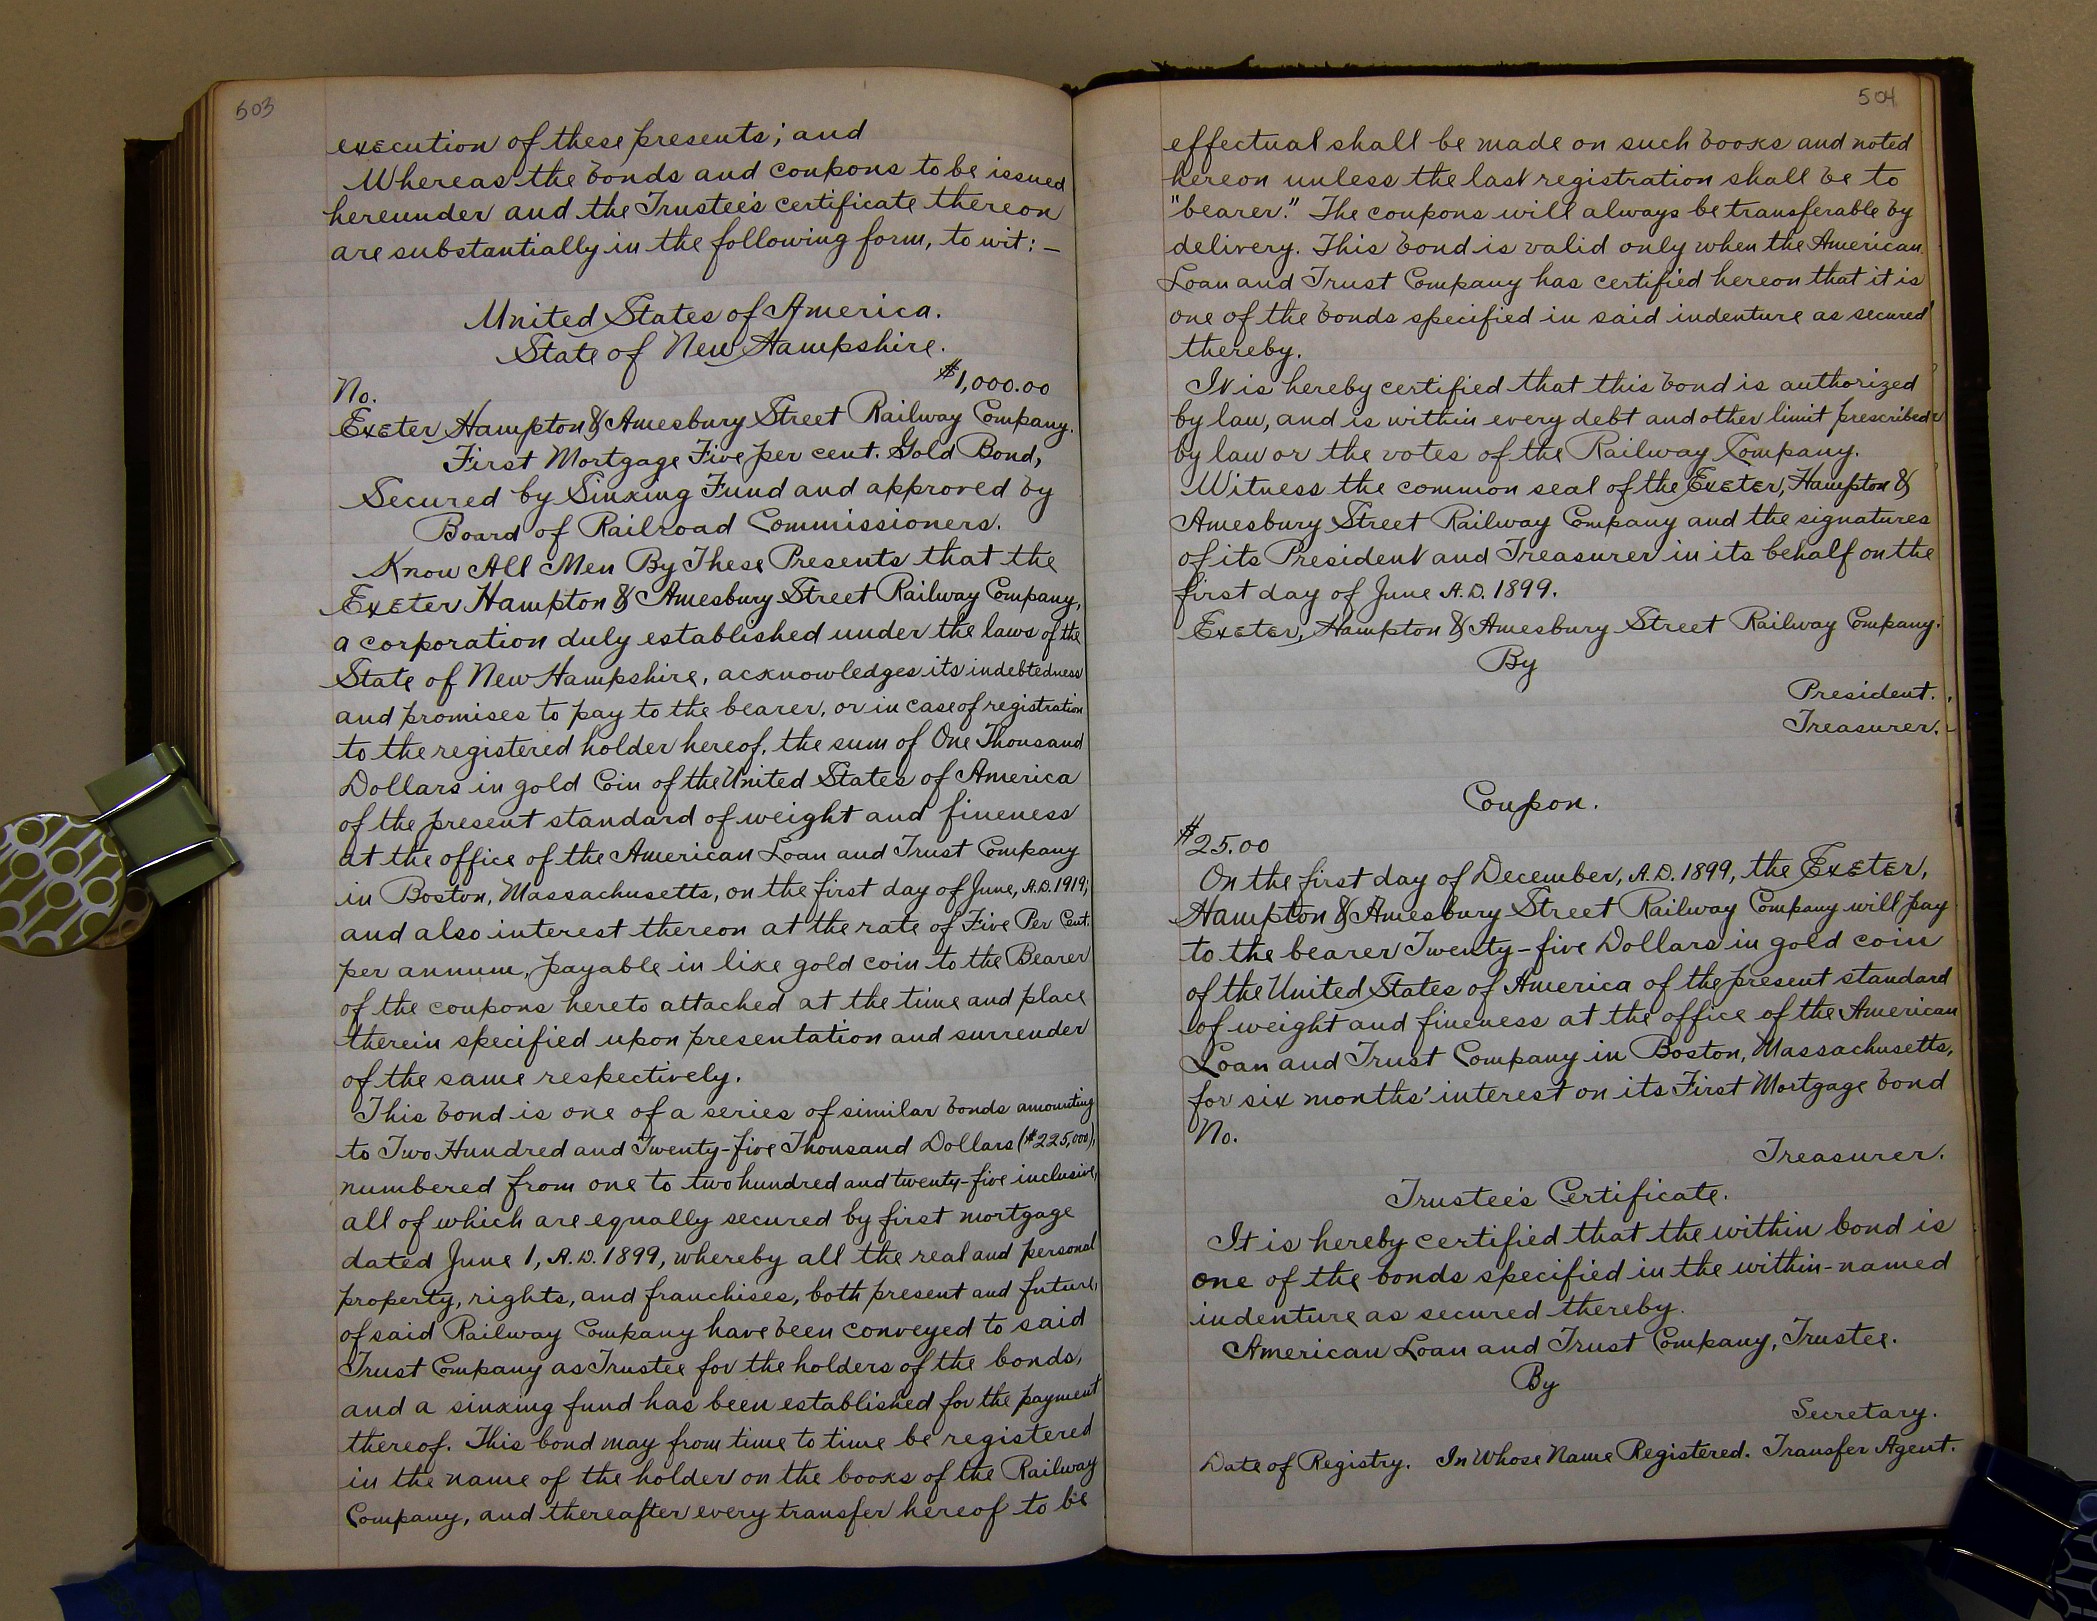 503
execution of these presents; and
Whereas the bonds and coupons to be issued
hereunder and the Trustee's certificate thereon
are substantially in the following form, to wit:—
United States of America.
State of New Hampshire.
No. $1,000.00
Exeter Hampton & Amesbury Street Railway Company.
First Mortgage Five per cent. Gold Bond,
Secured by Sinking Fund and approved by
Board of Railroad Commissioners.
Know All Men By These Presents that the
Exeter Hampton & Amesbury Street Railway Company,
a corporation duly established under the laws of the
State of New Hampshire, acknowledges its indebtedness
and promises to pay to the bearer, or in case of registration
to the registered holder hereof, the sum of One Thousand
Dollars in gold Coin of the United States of America
of the present standard of weight and fineness
at the office of the American Loan and Trust Company
in Boston, Massachusetts, on the first day of June, A.D. 1919;
and also interest thereon at the rate of Five Per Cent.
per annum, payable in like gold coin to the Bearer
of the coupons hereto attached at the time and place
therein specified upon presentation and surrender
of the same respectively.
This bond is one of a series of similar bonds amounting
to Two Hundred and Twenty-five Thousand Dollars ($225,000),
numbered from one to two hundred and twenty-five inclusive,
all of which are equally secured by first mortgage
dated June 1, A.D. 1899, whereby all the real and personal
property, rights, and franchises, both present and future,
of said Railway Company have been conveyed to said
Trust Company as Trustee for the holders of the bonds,
and a sinking fund has been established for the payment
thereof. This bond may from time to time be registered
in the name of the holder on the books of the Railway
Company, and thereafter every transfer hereof to be
504
effectual shall be made on such books and noted
hereon unless the last registration shall be to
"bearer." The coupons will always be transferable by
delivery. This bond is valid only when the American
Loan and Trust Company has certified hereon that it is
one of the bonds specified in said indenture as secured
thereby.
It is hereby certified that this bond is authorized
by law, and is within every debt and other limit prescribed
by law or the votes of the Railway Company.
Witness the common seal of the Exeter, Hampton &
Amesbury Street Railway Company and the signatures
of its President and Treasurer in its behalf on the
first day of June A.D. 1899.
Exeter, Hampton & Amesbury Street Railway Company.
By
President.
Treasurer.
Coupon.
$25.00
On the first day of December, A.D. 1899, the Exeter,
Hampton & Amesbury Street Railway Company will pay
to the bearer Twenty-five Dollars in gold coin
of the United States of America of the present standard
of weight and fineness at the office of the American
Loan and Trust Company in Boston, Massachusetts,
for six months' interest on its First Mortgage bond
No.
Treasurer.
Trustee's Certificate.
It is hereby certified that the within bond is
one of the bonds specified in the within-named
indenture as secured thereby.
American Loan and Trust Company, Trustee.
By
Secretary.
Date of Registry. In Whose Name Registered. Transfer Agent.